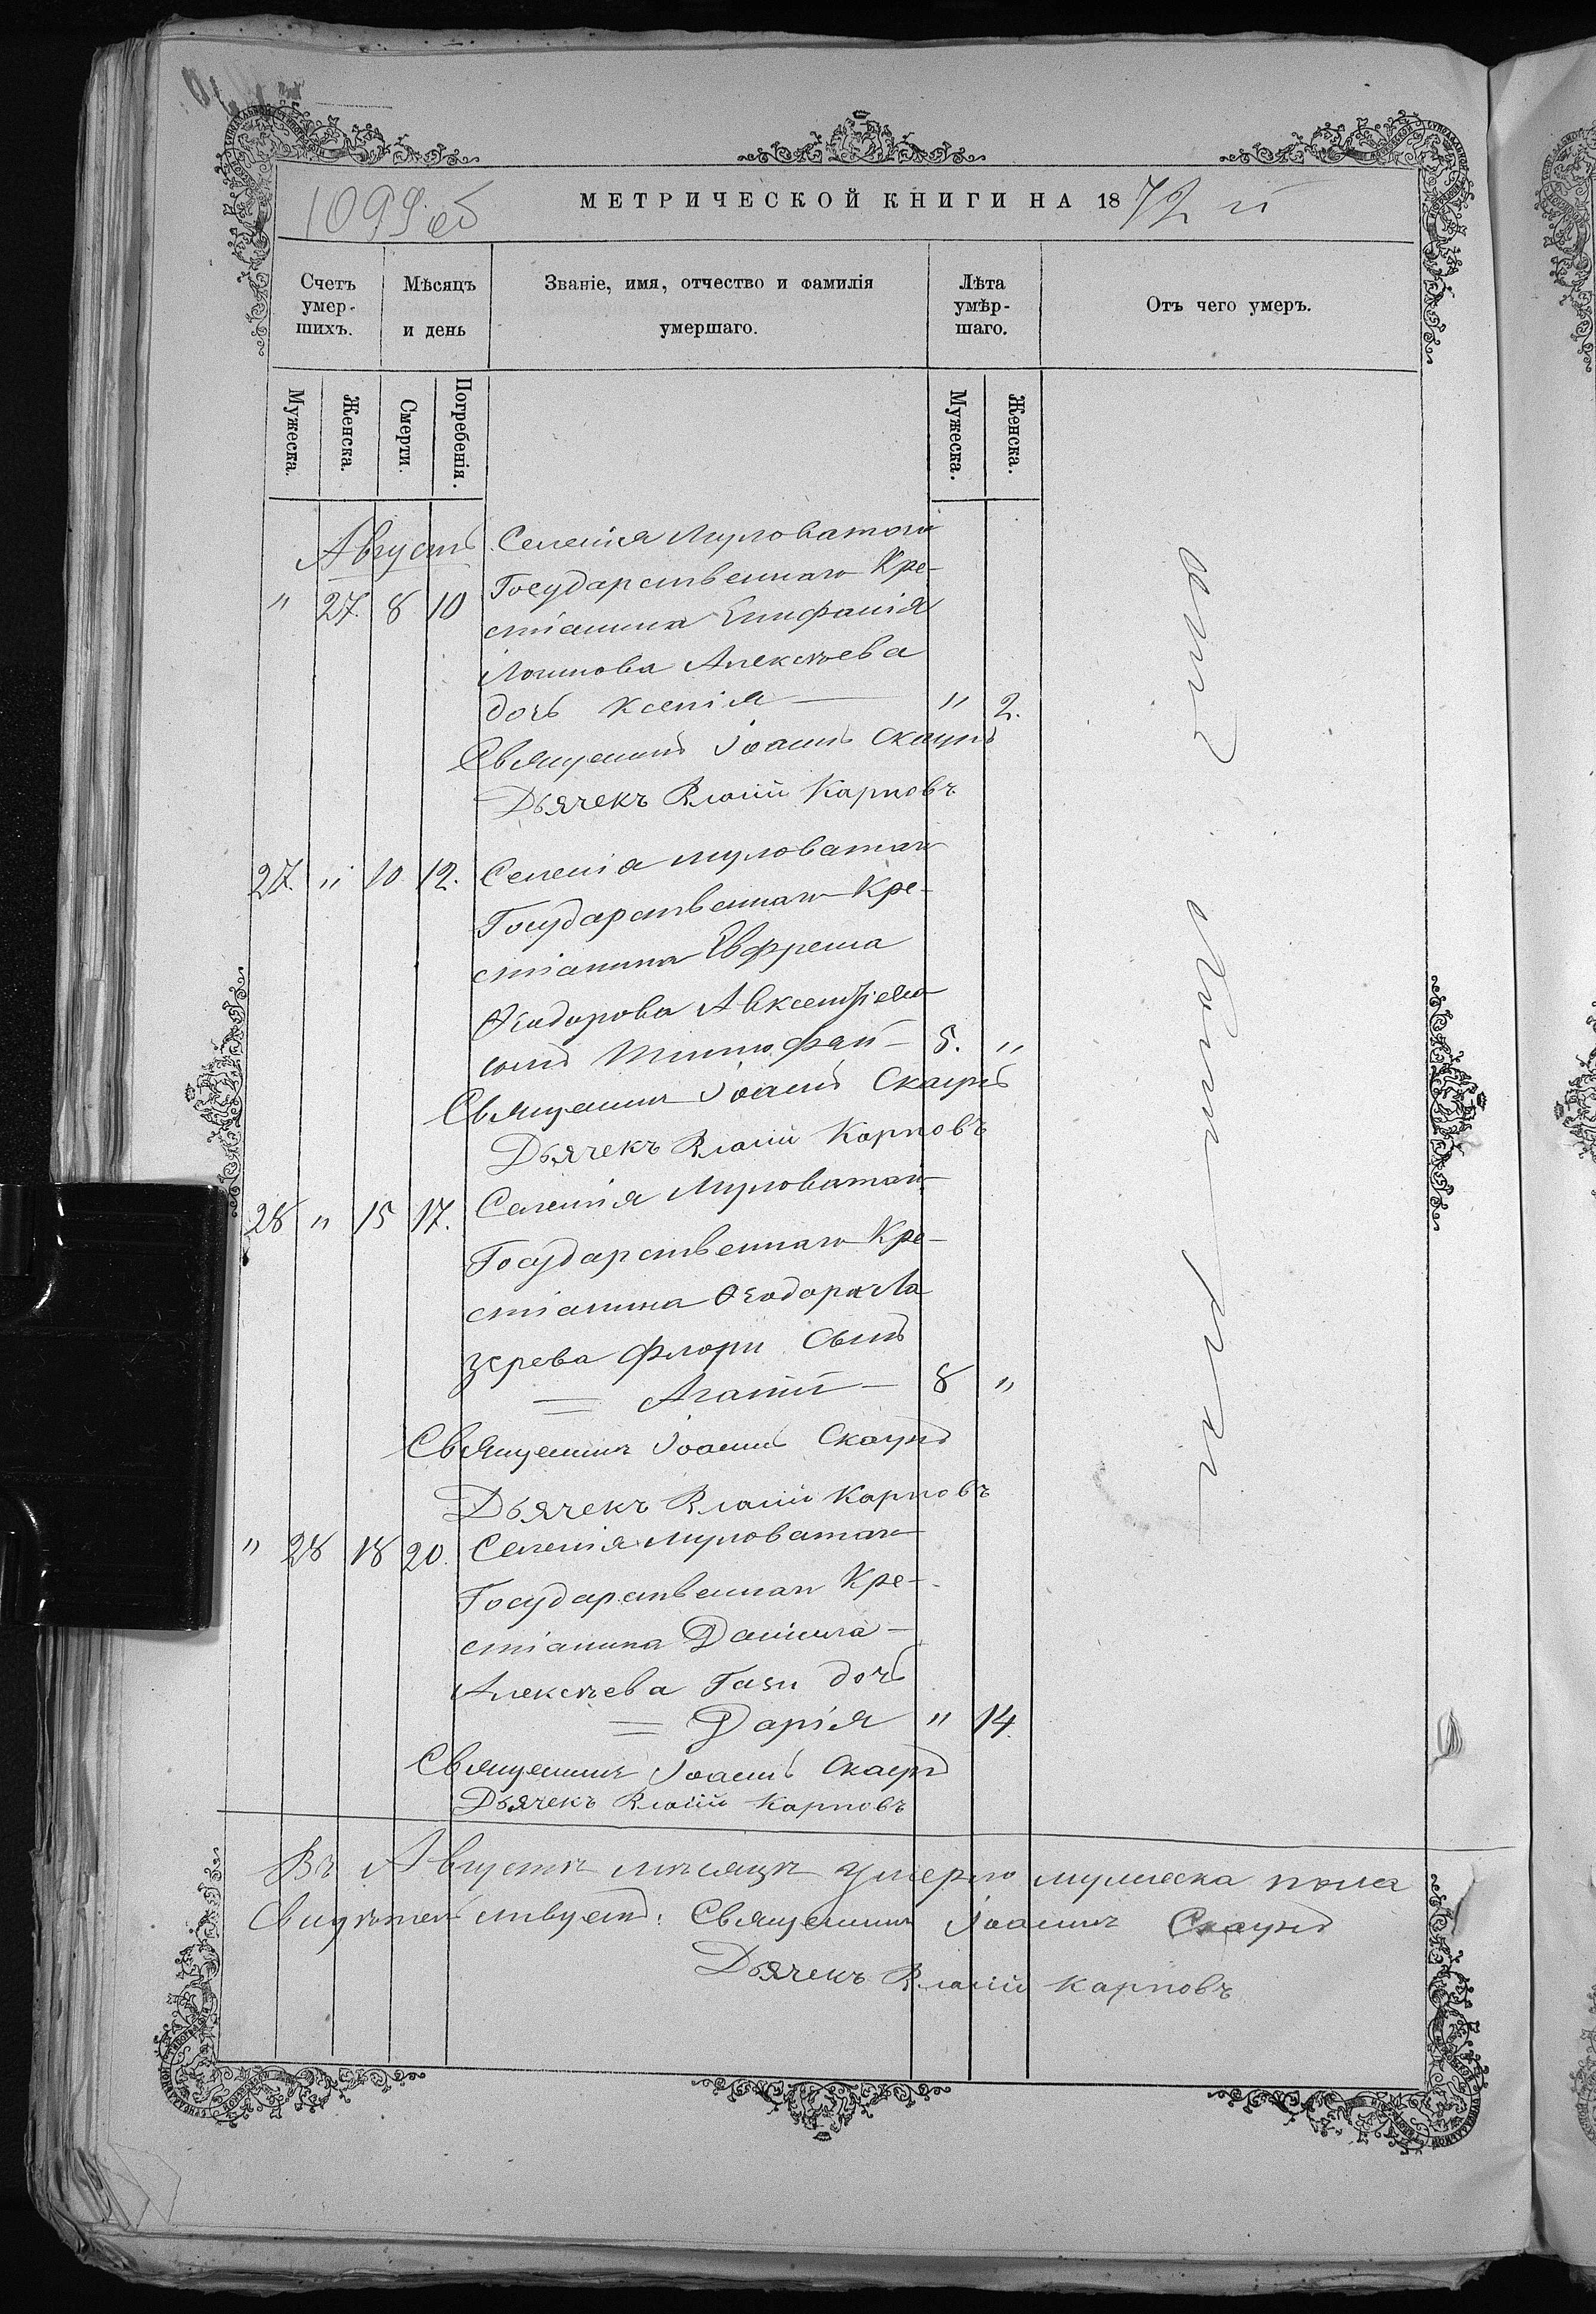 1099 об
МЕТРИЧЕСКОЙ КНИГИ НА 1872 й
Счетъ умер-шихъ.
Мѣсяцъ и день
Званіе, имя, отчество и фамилія умершаго.
Лѣта умѣр-шаго.
Отъ чего умеръ.
Мужеска. Женска. Смерти. Погребенія. Мужеска. Женска.
Августъ Селенія Муроватого
" 27. 8 10 Государственнаго Кре-
стіанина Епифанія
Логинова Алексѣева
дочь Ксенія — " 2.
Священникъ Іоаннъ Скаунъ
Дьячекъ Власій Карповъ
27. " 10 12. Селенія Муроватаго
Государственнаго Кре-
стіанина Евфрема
Ѳеодорова Авксентіева
сынъ Тимофей — 8. "
Священникъ Іоаннъ Скаунъ
Дьячекъ Власій Карповъ
28 " 15 17. Селенія Муроватаго
Государственнаго Кре-
стіанина Ѳеодора Ла
зерева Флори Сынъ
= Агапій — 8 "
Священникъ Іоаннъ Скаунъ
Дьячекъ Власій Карповъ
" 28 18 20. Селенія Муроватаго
Государственнаго Кре-
стіанина Даніила
Алексѣева Гази дочь
= Дарія " 14.
Священникъ Іоаннъ Скаунъ
Дьячекъ Власій Карповъ
отъ
Въ Августѣ мѣсяцѣ умерло мужеска пола
Свидѣтельствуетъ: Священникъ Іоаннъ Скаунъ
Дьячекъ Власій Карповъ